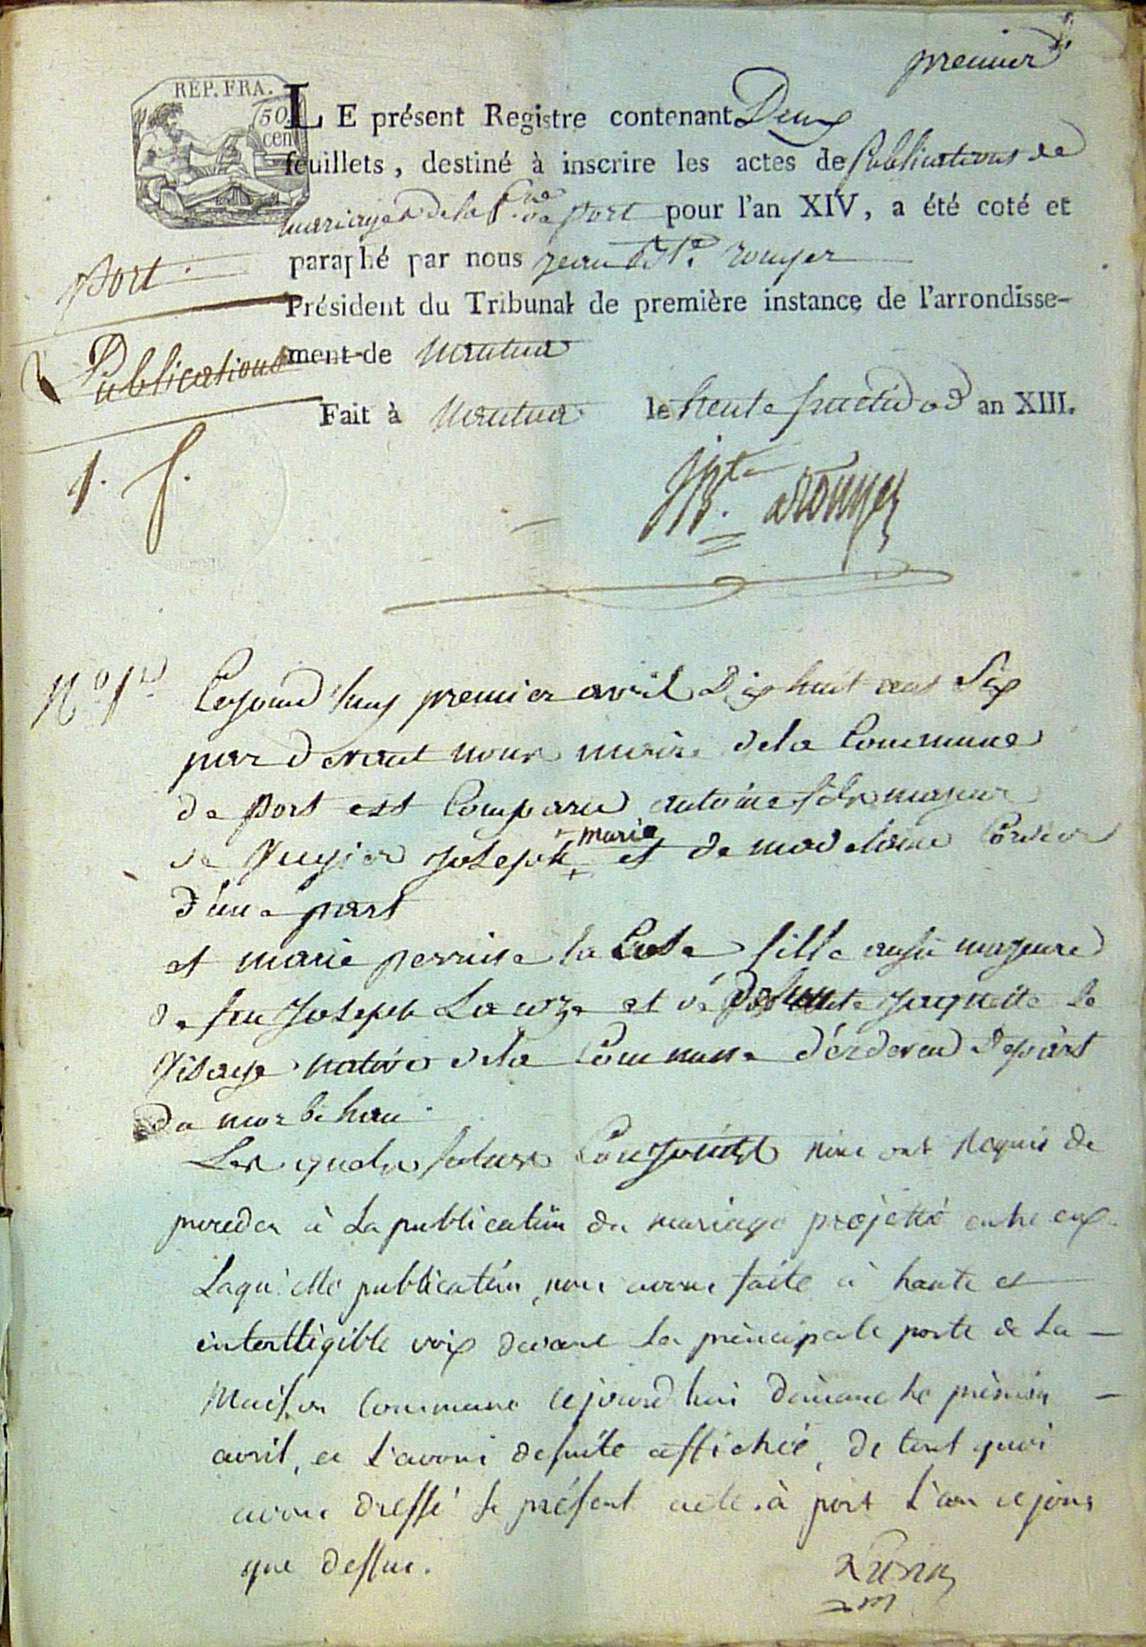 premier
REP. FRA.
50
cen
LE présent Registre contenant Deux
feuillets, destiné à inscrire les actes de Publications de
mariages de la Cne de Port pour l'an XIV, a été coté et
paraphé par nous jean Bte. rouyer
Président du Tribunal de première instance de l'arrondisse-
ment de Nantua
Fait à Nantua le trente fructidor an XIII.
Port.
Publications
1. f.
N° 1er
Cejourd'huy premier avril Dix huit cent Six
par devant nous maire de la Commune
de port est Comparu antoine fils majeur
de Joseph marie et de madelaine
d'une part
et marie perrine la fille aussi majeure
de feu Joseph et de Defunte Jaquette Le
native de la Commune d'érdeven Depart
du morbihan.
Les quels futurs Conjoints nous ont Requis de
proceder à La publication du mariage projetté entre eux.
Laqu'elle publication, nous avons faite à haute et
intelligible voix devant La principale porte de La
Maison Commune cejourd'hui dimanche premier
avril, et L'avons de suite affichée, de tout quoi
avons dressé le présent acte. à port L'an et jour
que dessus.